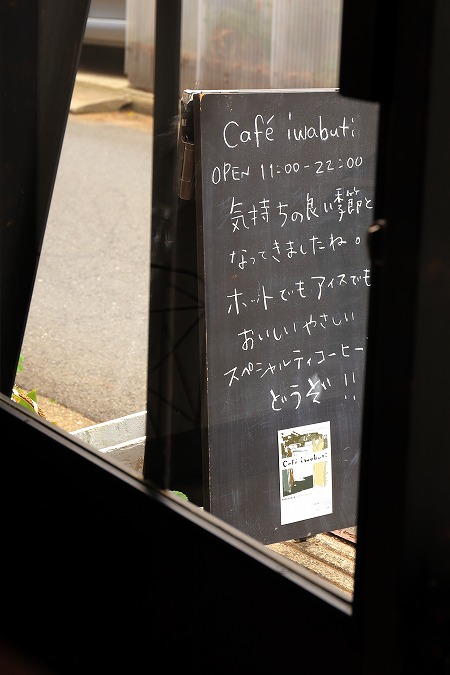 Café iwabuti
OPEN 11:00-22:00
気持ちの良い季節と
なってきましたね。
ホットでもアイスでも
おいしいやさしい
スペシャルティコーヒー
どうぞ!!
Café iwabuti